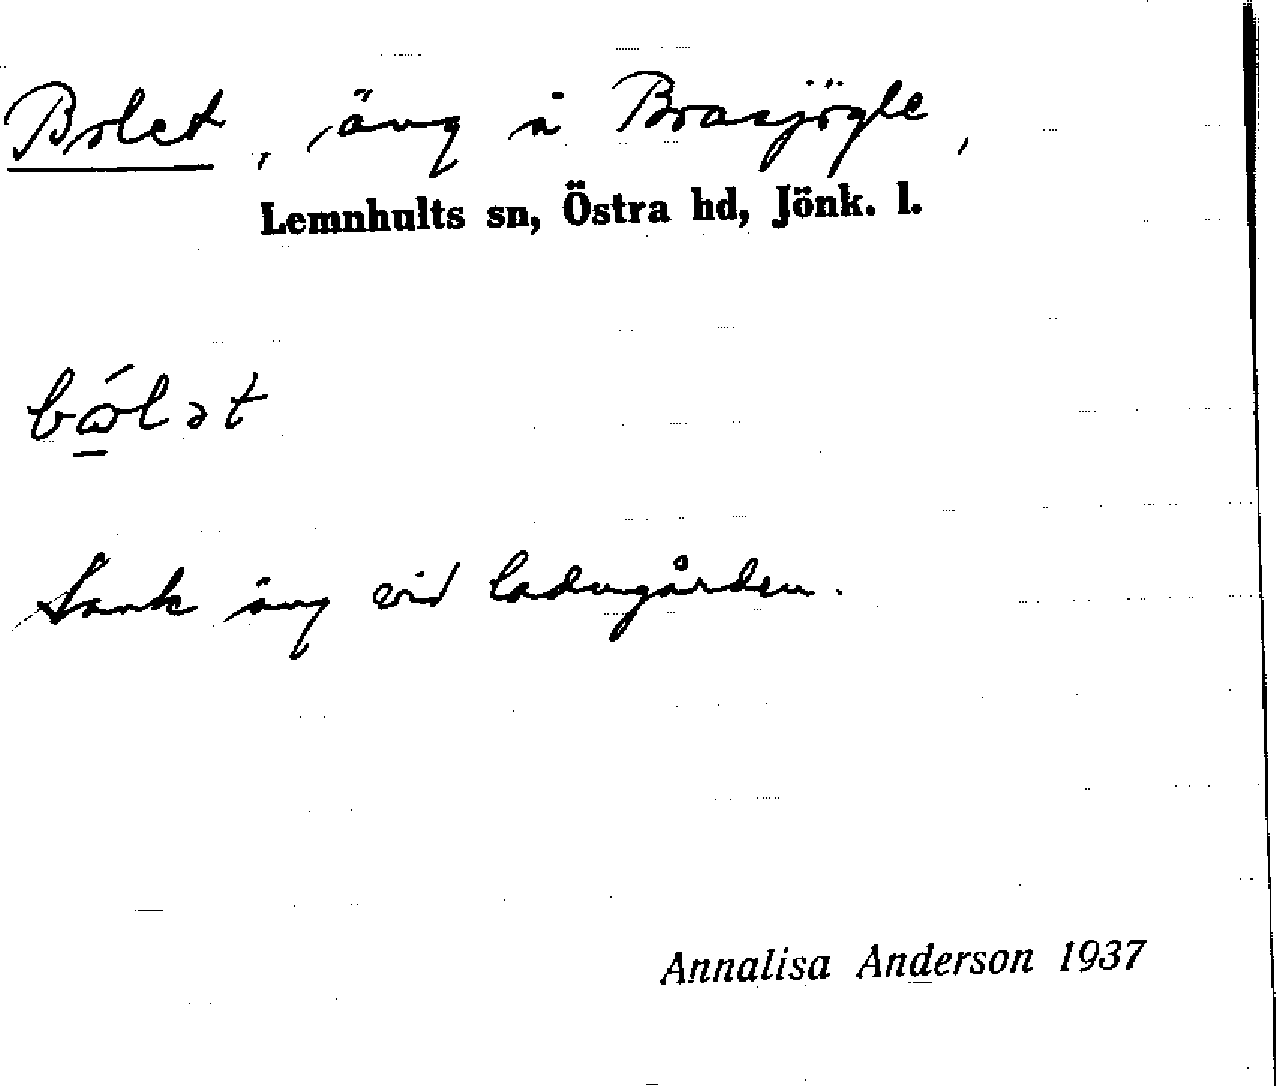 Bolet, äng å Brasjögle,
Lemnhults sn, Östra hd, Jönk. l.
Sank äng vid ladugården.
Annalisa Anderson 1937